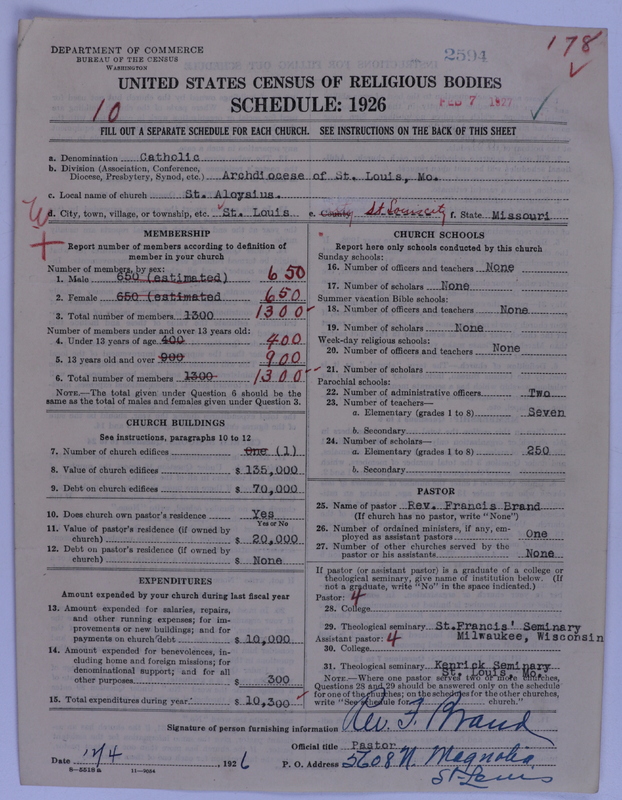 DEPARTMENT OF COMMERCE
BUREAU OF THE CENSUS
WASHINGTON
2594
178
UNITED STATES CENSUS OF RELIGIOUS BODIES
SCHEDULE: 1926
10
FEB 7 1927
FILL OUT A SEPARATE SCHEDULE FOR EACH CHURCH. SEE INSTRUCTIONS ON THE BACK OF THIS SHEET
a. Denomination Catholic
b. Division (Association, Conference, Diocese, Presbytery, Synod, etc.) Archdiocese of St. Louis, Mo.
c. Local name of church St. Aloysius.
d. City, town, village, or township, etc. St. Louis e. County St. Louis City f. State Missouri
MEMBERSHIP
Report number of members according to definition of
member in your church
Number of members, by sex:
1. Male 650 (estimated) 650
2. Female 650 (estimated) 650
3. Total number of members 1300 1300
Number of members under and over 13 years old:
4. Under 13 years of age 400 400
5. 13 years old and over 900 900
6. Total number of members 1300 1300
NOTE.—The total given under Question 6 should be
same as the total of males and females given under Question 3.
CHURCH BUILDINGS
See instructions, paragraphs 10 to 12
7. Number of church edifices One (1)
8. Value of church edifices $ 135,000
9. Debt on church edifices $ 70,000
10. Does church own pastor's residence Yes
Yes or No
11. Value of pastor's residence (if owned by
church) $ 20,000
12. Debt on pastor's residence (if owned by
church) $ None
EXPENDITURES
Amount expended by your church during last fiscal year
13. Amount expended for salaries, repairs,
and other running expenses; for im-
provements or new buildings; and for
payments on church debt $ 10,000
14. Amount expended for benevolences, in-
cluding home and foreign missions; for
denominational support; and for all
other purposes $ 300
15. Total expenditures during year $ 10,300
CHURCH SCHOOLS
Report here only schools conducted by this church
Sunday schools:
16. Number of officers and teachers None
17. Number of scholars None
Summer vacation Bible schools:
18. Number of officers and teachers None
19. Number of scholars None
Week-day religious schools:
20. Number of officers and teachers None
21. Number of scholars
Parochial schools:
22. Number of administrative officers Two
23. Number of teachers—
a. Elementary (grades 1 to 8) Seven
b. Secondary
24. Number of scholars—
a. Elementary (grades 1 to 8) 250
b. Secondary
PASTOR
25. Name of pastor Rev. Francis Brand
(If church has no pastor, write "None")
26. Number of ordained ministers, if any, em-
ployed as assistant pastors One
27. Number of other churches served by the
pastor or his assistants None
If pastor (or assistant pastor) is a graduate of a college or
theological seminary, give name of institution below. (If
not a graduate, write "No" in the space indicated.)
Pastor: 4
28. College
29. Theological seminary St. Francis' Seminary
Milwaukee, Wisconsin
Assistant pastor: 4
30. College
31. Theological seminary Kenrick Seminary
St. Louis, Mo.
NOTE.—Where one pastor served two or more churches,
Questions 28 and 29 should be answered only on the schedule
for one of the churches; on the schedules for the other churches,
write "See schedule for church."
Signature of person furnishing information Rev. F. Brand
Official title Pastor
Date 12/4, 1926 P. O. Address 5608 N. Magnolia
St Louis
8—5518a 11—9054